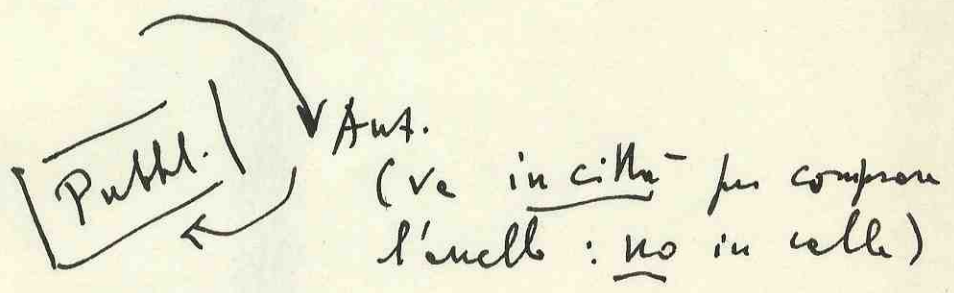 Pubbl.
Aut.
(va in città per comprare
l'anello : no in valle)